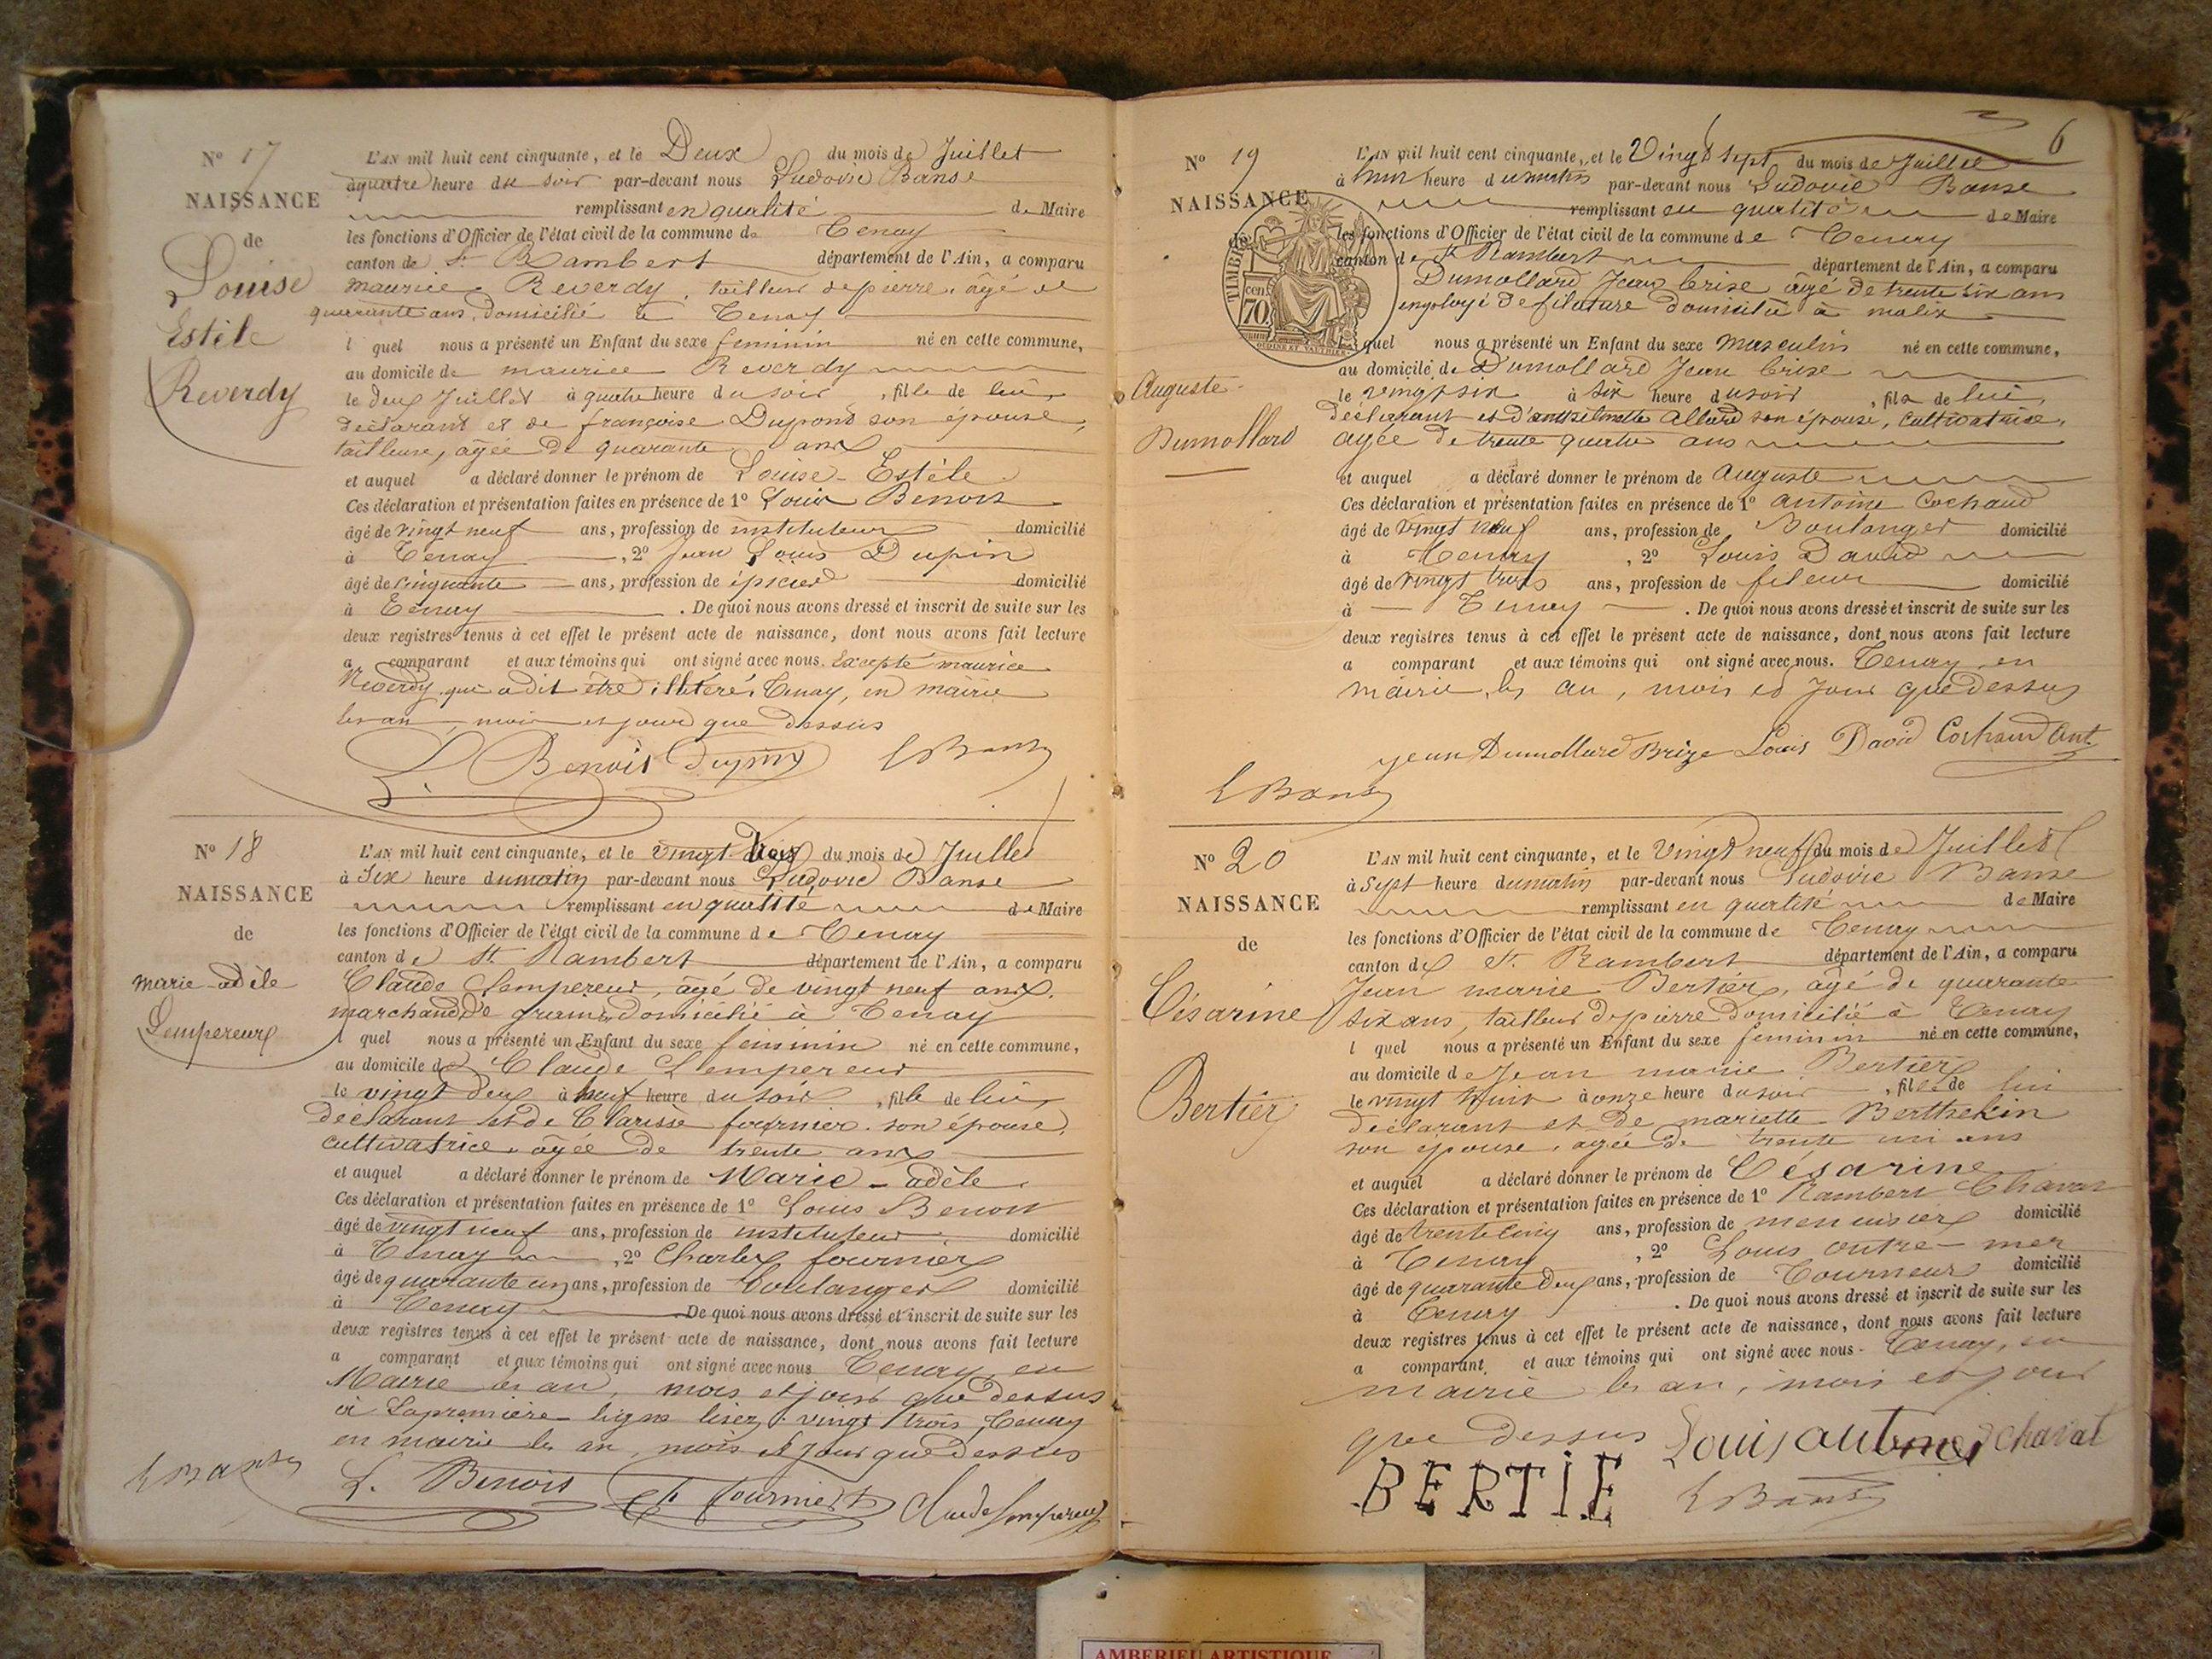 Nº 17
NAISSANCE
de
Louise
Estèle
Reverdy
L'AN mil huit cent cinquante, et le Deux du mois de Juillet
à quatre heure du soir par-devant nous Ludovic Banse
remplissant en qualité de Maire
les fonctions d'Officier de l'état civil de la commune de Tenay
canton de St Rambert département de l'Ain, a comparu
maurice Reverdy, tailleur de pierre, âgé de
quarante ans, domicilié à Tenay
l quel nous a présenté un Enfant du sexe feminin né en cette commune,
au domicile de maurice Reverdy
le deux Juillet à quatre heure du soir, fille de lui,
déclarant et de françoise Dupont son épouse,
tailleuse, âgée de quarante ans
et auquel a déclaré donner le prénom de Louise-Estèle.
Ces déclaration et présentation faites en présence de 1º Louis Benoit
âgé de vingt neuf ans, profession de instituteur domicilié
à Tenay, 2º Jean Louis Dupin
âgé de cinquante ans, profession de épicier domicilié
à Tenay. De quoi nous avons dressé et inscrit de suite sur les
deux registres tenus à cet effet le présent acte de naissance, dont nous avons fait lecture
a comparant et aux témoins qui ont signé avec nous. Excepté maurice
Reverdy qui a dit être illitéré. Tenay, en mairie
les an, mois et jour que dessus
L. Benoit Dupin L Banse
Nº 18
NAISSANCE
de
marie-adèle
Lempereur
L'AN mil huit cent cinquante, et le vingt trois du mois de Juillet
à Six heure du matin par-devant nous Ludovic Banse
remplissant en qualité de Maire
les fonctions d'Officier de l'état civil de la commune de Tenay
canton de St Rambert département de l'Ain, a comparu
Claude Lempereur, âgé de vingt neuf ans,
marchand de grains, domicilié à Tenay
l quel nous a présenté un Enfant du sexe feminin né en cette commune,
au domicile de Claude Lempereur
le vingt deux à neuf heure du soir, fille de lui,
declarant et de Clarisse fournier son épouse,
cultivatrice, âgée de trente ans
et auquel a déclaré donner le prénom de Marie-adèle.
Ces déclaration et présentation faites en présence de 1º Louis Benoit
âgé de vingt neuf ans, profession de instituteur domicilié
à Tenay, 2º Charles fournier
âgé de quarante un ans, profession de boulanger domicilié
à Tenay De quoi nous avons dressé et inscrit de suite sur les
deux registres tenus à cet effet le présent acte de naissance, dont nous avons fait lecture
a comparant et aux témoins qui ont signé avec nous Tenay, en
Mairie les an, mois et jour que dessus
à la première ligne lisez: vingt trois, Tenay
en mairie les an, mois et jour que dessus
L Banse L. Benoit Ch fournier Claude Lempereur
6
Nº 19
NAISSANCE
de
TIMBRE
70 cent
OUDINE ET VAUTHIER
Auguste
Dumollard
L'AN mil huit cent cinquante, et le Vingt sept du mois de Juillet
à heure du matin par-devant nous Ludovic Banse
remplissant en qualité de Maire
les fonctions d'Officier de l'état civil de la commune de Tenay
canton de St Rambert département de l'Ain, a comparu
Dumollard Jean brise âgé de trente six ans
employé de filature domicilié à malix
l quel nous a présenté un Enfant du sexe Masculin né en cette commune,
au domicile de Dumollard Jean brise
le vingt six à six heure du soir, fils de lui,
déclarant et d'anthelmette Allard son épouse, Cultivatrice,
agée de trente quatre ans
et auquel a déclaré donner le prénom de Auguste
Ces déclaration et présentation faites en présence de 1º antoine Cochaud
âgé de vingt neuf ans, profession de Boulanger domicilié
à Tenay, 2º Louis David
âgé de vingt trois ans, profession de fileur domicilié
à Tenay. De quoi nous avons dressé et inscrit de suite sur les
deux registres tenus à cet effet le présent acte de naissance, dont nous avons fait lecture
a comparant et aux témoins qui ont signé avec nous. Tenay en
mairie, les an, mois et Jour que dessus
jean Dumollard Brize Louis David Cochaud Ant.
L Banse
Nº 20
NAISSANCE
de
Césarine
Bertier
L'AN mil huit cent cinquante, et le Vingt neuf du mois de Juillet
à Sept heure du matin par-devant nous Ludovic Banse
remplissant en qualité de Maire
les fonctions d'Officier de l'état civil de la commune de Tenay
canton de St. Rambert département de l'Ain, a comparu
Jean marie Bertier, âgé de quarante
six ans, tailleur de pierre domicilié à Tenay
l quel nous a présenté un Enfant du sexe feminin né en cette commune,
au domicile de Jean marie Bertier
le vingt huit à onze heure du soir, fille de lui
déclarant et de mariette Berthelin
son épouse, agée de trente un ans
et auquel a déclaré donner le prénom de Césarine
Ces déclaration et présentation faites en présence de 1º Rambert Chavat
âgé de trente cinq ans, profession de menuisier domicilié
à Tenay, 2º Louis outre-mer
âgé de quarante deux ans, profession de Tourneur domicilié
à Tenay. De quoi nous avons dressé et inscrit de suite sur les
deux registres tenus à cet effet le présent acte de naissance, dont nous avons fait lecture
a comparant et aux témoins qui ont signé avec nous. Tenay, en
mairie les an, mois et jour
que dessus Louis autrmer chavat
BERTIE L Banse
AMBERIEU ARTISTIQUE